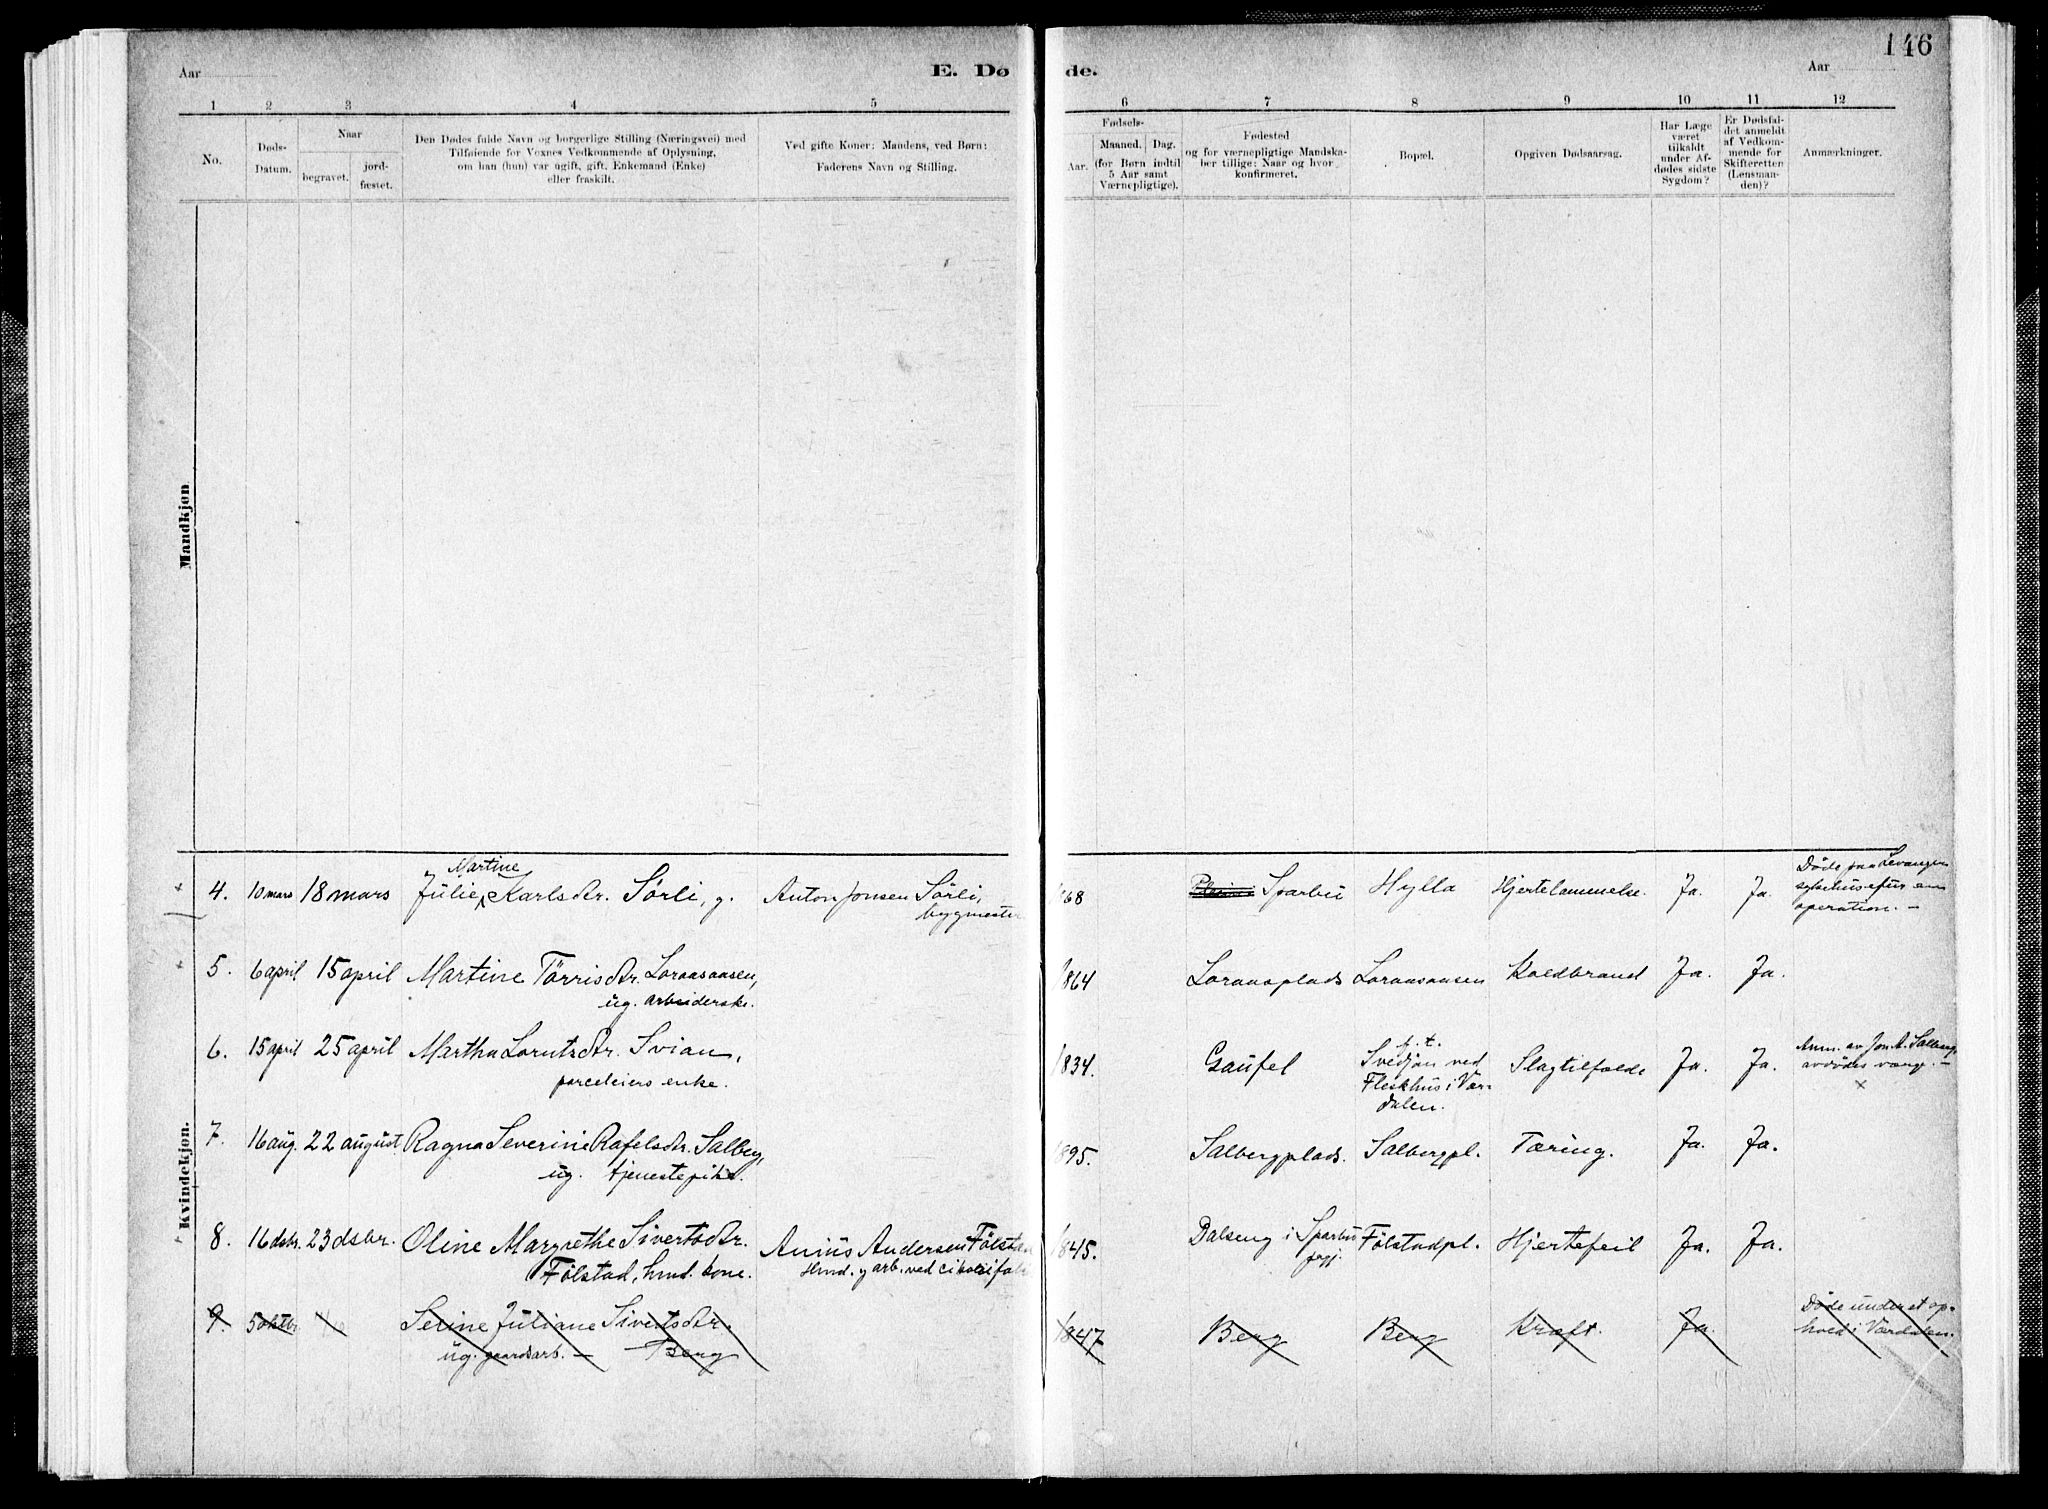 146
Aar
E. Dø
de.
Aar
1 2 3 4 5 6 7 8 9 10 11 12
No.
Døds-
Datum.
Naar
begravet.
jord-
fæstet.
Den Dødes fulde Navn og borgerlige Stilling (Næringsvei) med
Tilføiende for Voxnes Vedkommende af Oplysning,
om han (hun) var ugift, gift, Enkemand (Enke)
eller fraskilt.
Ved gifte Koner: Mandens, ved Børn:
Faderens Navn og Stilling.
Fødsels-
Aar.
Maaned. Dag.
(for Børn indtil
5 Aar samt
Værnepligtige).
Fødested
og for værnepligtige Mandska-
ber tillige: Naar og hvor
konfirmeret.
Bopæl.
Opgiven Dødsaarsag.
Har Læge
været
tilkaldt
under Af-
dødes sidste
Sygdom?
Er Dødsfal-
det anmeldt
af Vedkom-
mende for
Skifteretten
(Lensman-
den)?
Anmærkninger.
Mandkjøn
Kvindekjøn.
Martine
4. 10 mars 18 mars Julie, Karlsdtr. Sørli, g. Anton Jonsen Sørli, 1868 Sparbu Hylla Hjertelammelse. Ja. Ja. Døde paa Levanger
bygmester
sykehus efter en
operation. —
5. 6 april 15 april Martine Tørrisdtr. 1864 Koldbrand Ja. Ja.
ug. arbeiderske.
6. 15 april 25 april Martha Lorntsdtr. Svian, 1834. Gaufel p.t. Slagtilfælde Ja. Ja. Anm. av Jon A. Salberg,
parceleiers enke.
Svedjan ved
Fleskhus i Vær-
dalen.
7. 16 aug. 22 august Ragna Severine Rafelsdtr. Salberg, 1895. Salbergplads. Salbergpl. Tæring. Ja. Ja.
ug. tjenestepike.
8. 16 dsbr. 23 dsbr. Oline Margrethe Sivertsdtr. Anius Andersen Følstad 1845. Dalseng i Sparbu Følstadpl. Hjertefeil Ja. Ja.
Følstad, hmd. kone. Hmd. g arb. ved cikorifab
9. 5 oktbr. Seline Juliane Sivertsdtr. 1847 Berg Berg Kræft. Ja. Døde under et op-
ug. gaardsarb. — Berg
hold i Værdalen.